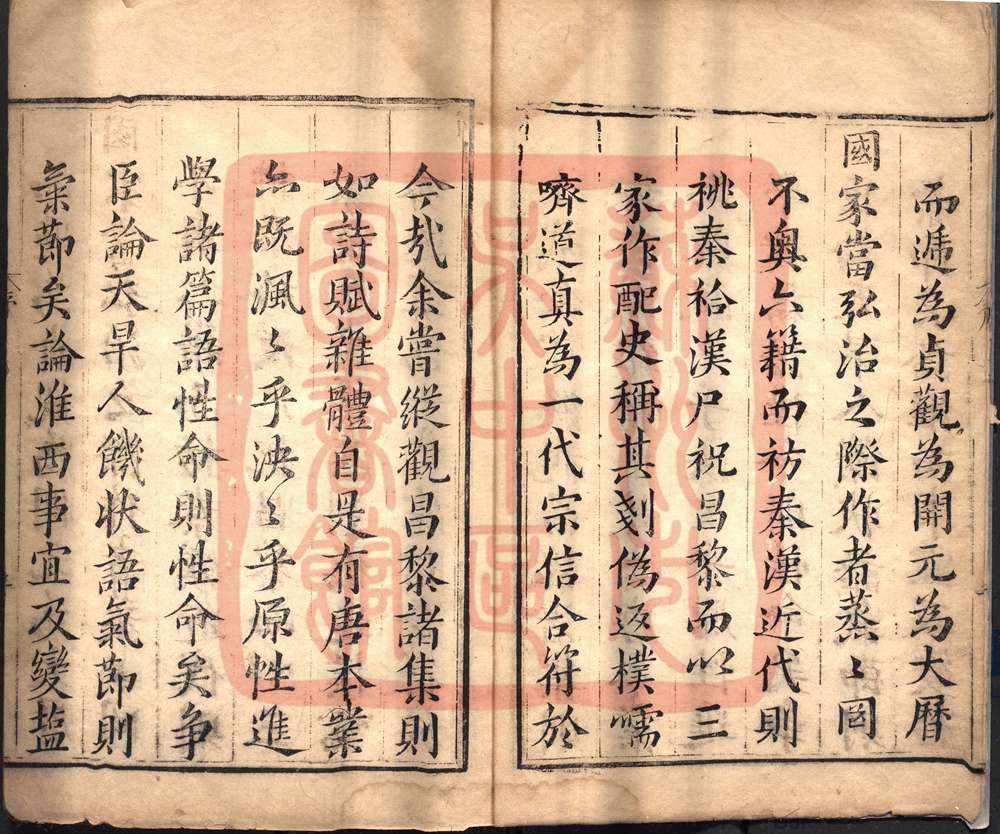 而遞為貞觀為開元為大曆
國家當弘治之際作者蒸〻罔
不奧六籍而祊秦漢近代則
祧秦祫漢尸祝昌黎而以三
家作配史稱其剗偽返樸嚅
嚌道真為一代宗信合符於
今哉余嘗縱觀昌黎諸集則
如詩賦雜體自是有唐本業
亦既渢〻乎泱〻乎原性進
學諸篇語性命則性命矣争
臣論天旱人饑状語氣節則
氣節矣論淮西事宜及變塩
圖書館